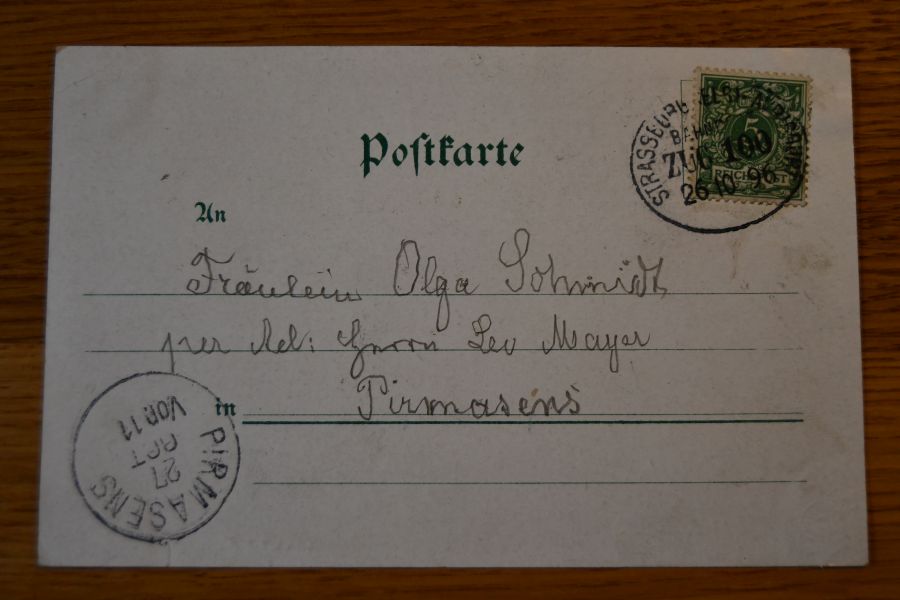 Postkarte
5
REICHSPOST
STRASSBURG
BAHN
ZUG 100
26 10 96
An
Fräulein Olga Schmidt
per Ad: Herrn Leo Mayer
in Pirmasens
PIRMASENS
27
OCT
VOR.11